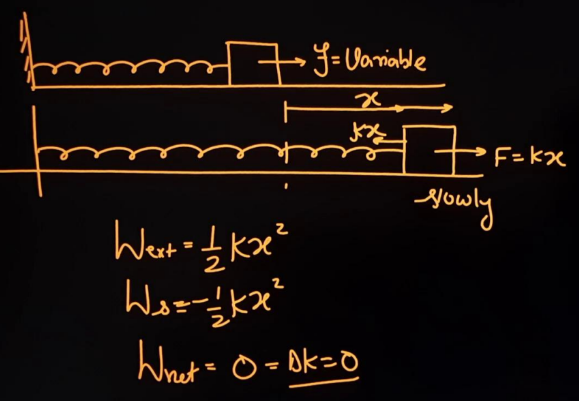 F = Variable
x
kx
F = kx
slowly
Wext = 1/2 kx²
Ws = -1/2 kx²
Wnet = 0 = Δk = 0